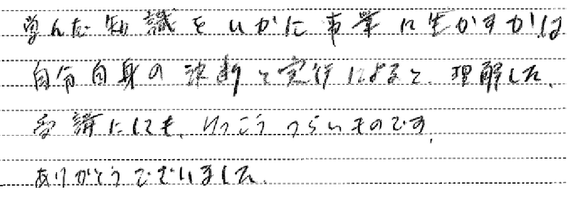 学んだ知識をいかに事業に生かすかは
自分自身の決断と実行によると、理解した。
受講にしても、けっこうつらいものです。
ありがとうございました。